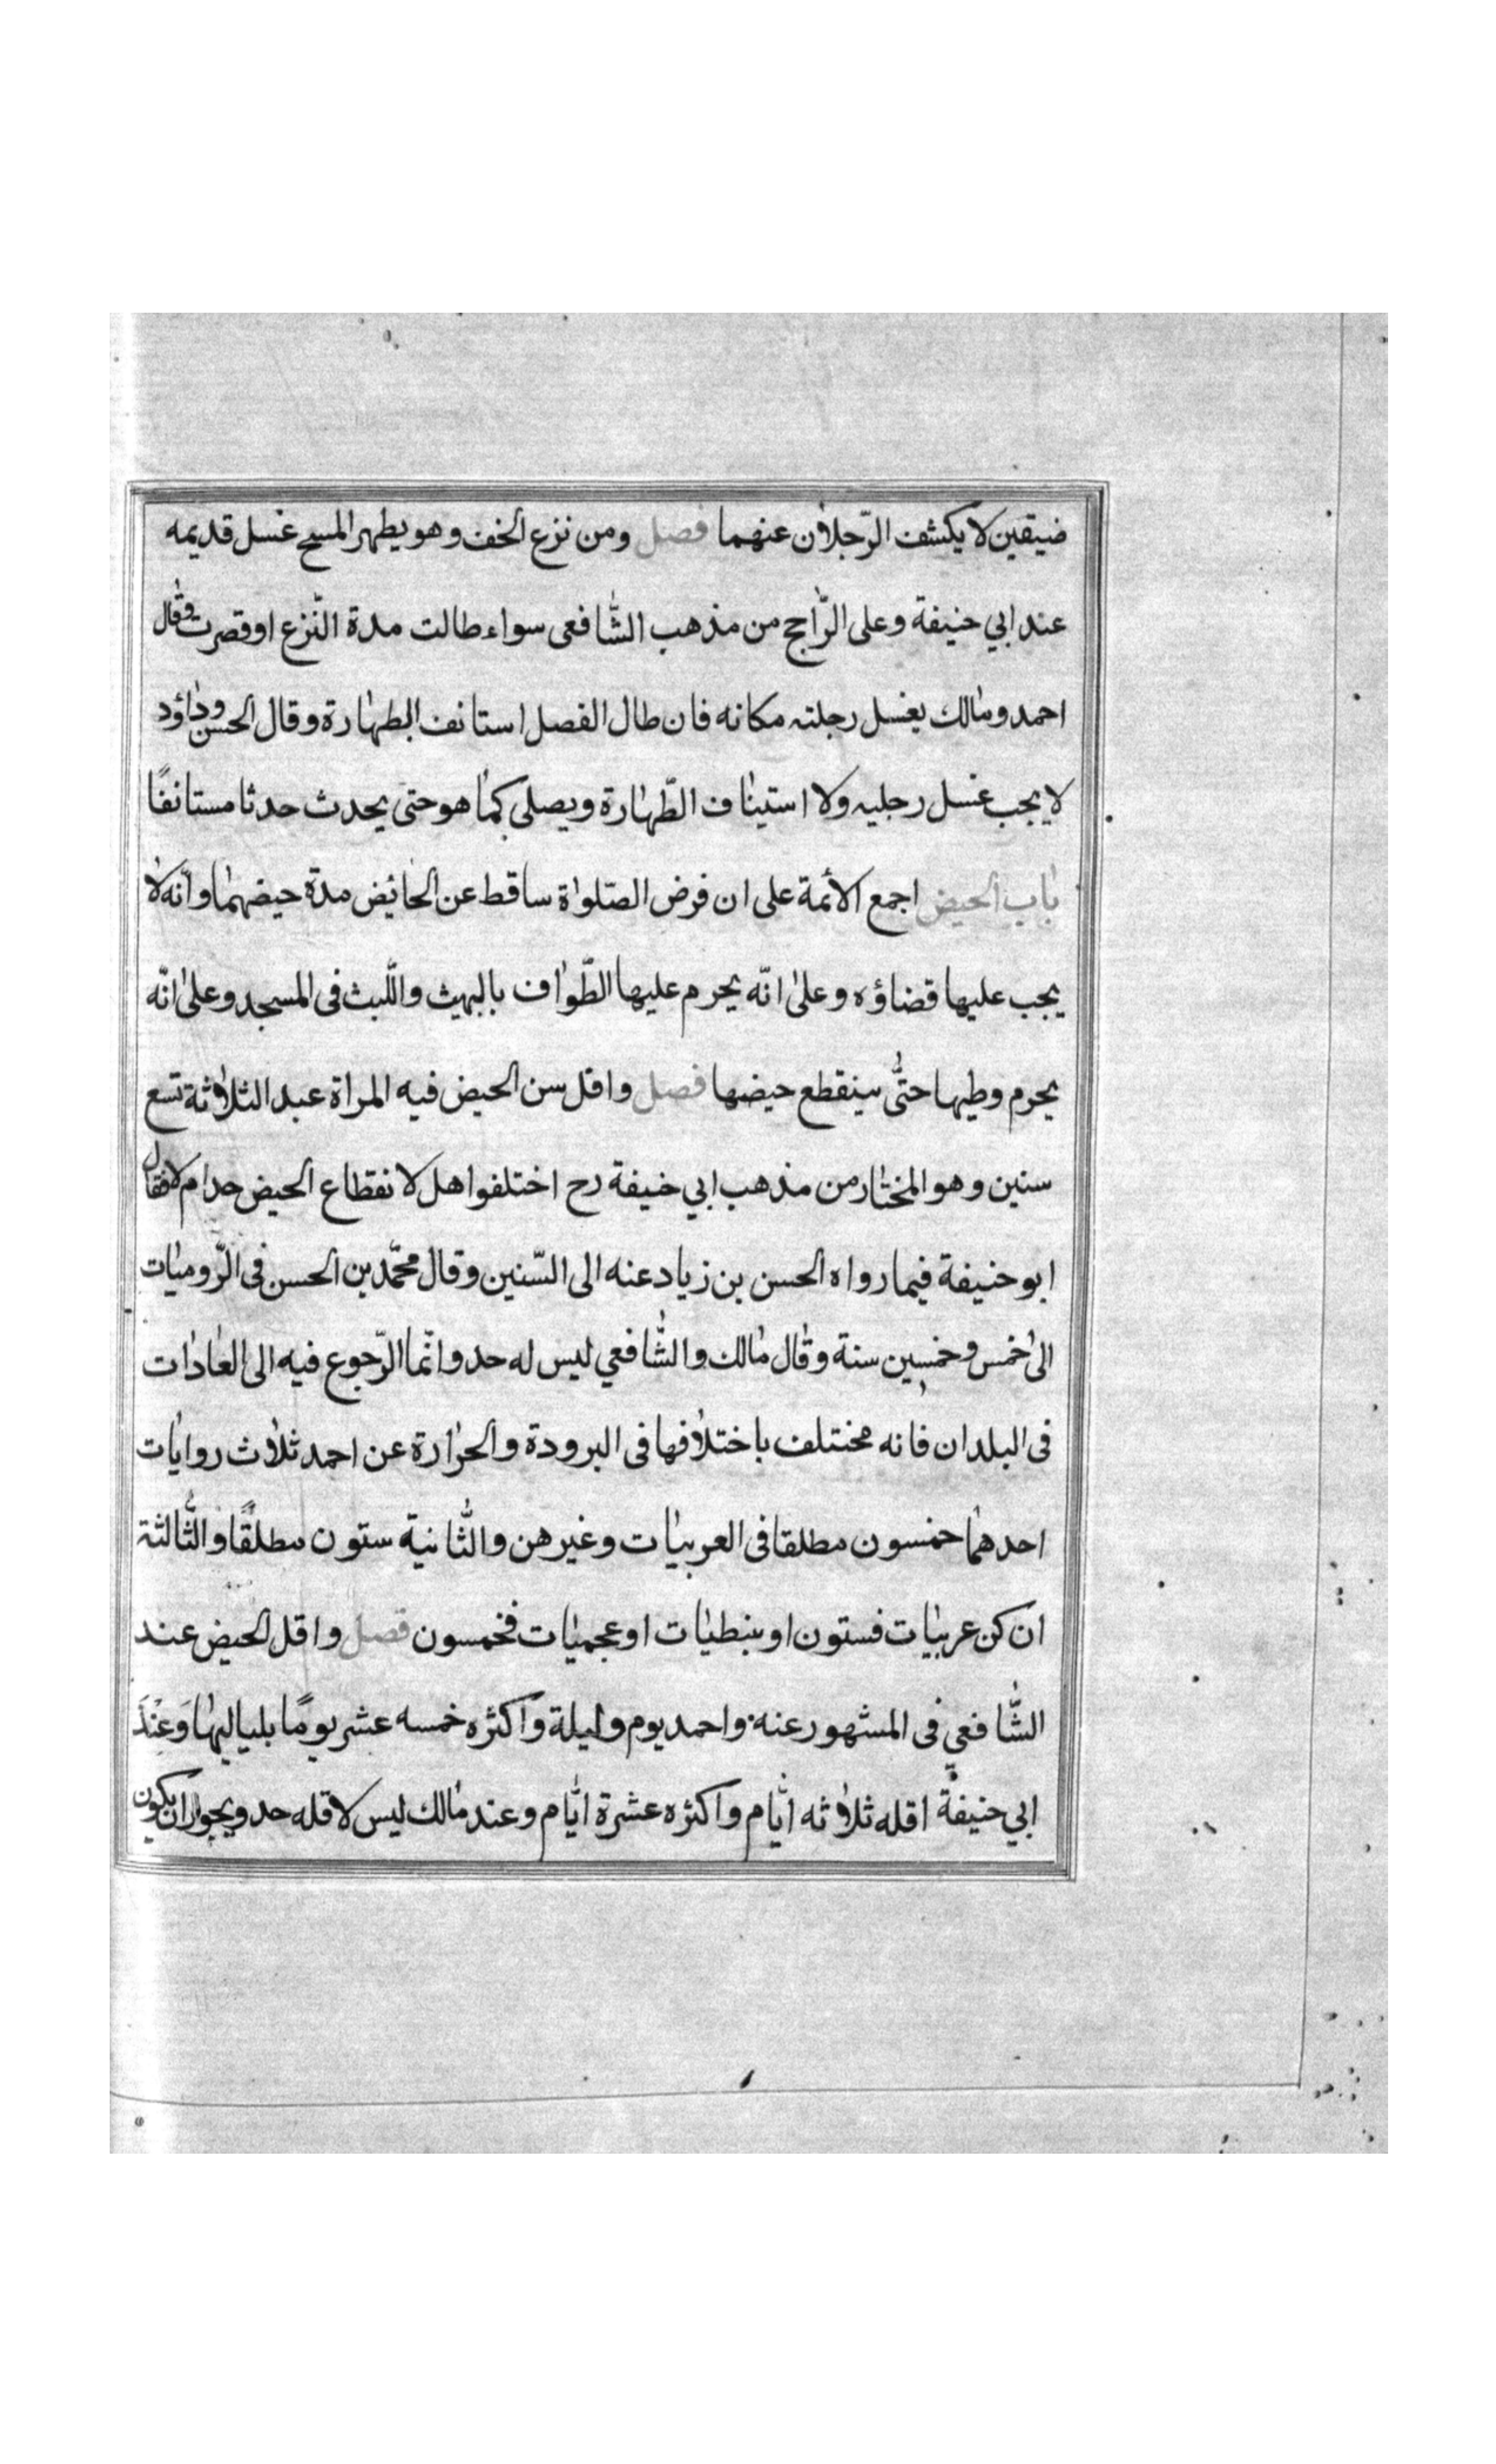 ضيقين لا يكشف الرّجلان عنهما فصل ومن نزع الخف وهو يطهر المسح غسل قديمه
عند ابي حنيفة وعلى الرّاجح من مذهب الشّافعى سواء طالت مدة النّزع او قصرت وقال
احمد ومالك يغسل رجلته مكانه فان طال الفصل استانف الطهارة وقال الحسن وداؤد
لا يجب غسل رجليه ولا استيناف الطّهارة ويصلى كما هو حتى يحدث حدثا مستانفًا
باب الحيض اجمع الائمة على ان فرض الصّلواة ساقط عن الحائض مدة حيضهما وانّه لا
يجب عليها قضاؤه وعلى انّه يحرم عليها الطّواف بالبيت واللّبث فى المسجد وعلى انّه
يحرم وطيها حتّى ينقطع حيضها فصل واقل سن الحيض فيه المراة عبد الثلاثة تسع
سنين وهو المختار من مذهب ابي حنيفة رح اختلفوا هل لانقطاع الحيض حد ام لا فقال
ابو حنيفة فيما رواه الحسن بن زياد عنه الى السّنين وقال محمّد بن الحسن فى الرّوميات
الى خمس وخمسين سنة وقال مالك والشّافعي ليس له حد وانّما الرّجوع فيه الى العادات
فى البلدان فانه مختلف باختلافها فى البرودة والحرارة عن احمد ثلاث روايات
احدهما خمسون مطلقا فى العربيات وغيرهن والثّانية ستون مطلقًا والثّالثة
ان كن عربيات فستون او ببنطيات او عجميات فخمسون فصل واقل الحيض عند
الشّافعي فى المشهور عنه واحمد يوم وليلة واكثره خمسه عشر يومًا بلياليها وَعنْدَ
ابي حنيفة اقله ثلاثه ايّام واكثره عشرة ايّام وعند مالك ليس لاقله حد ويجوز ان يكون